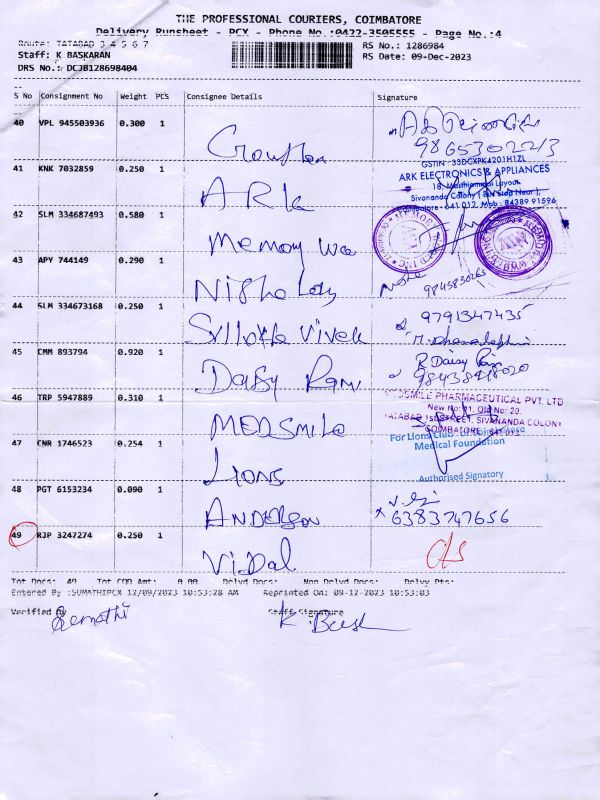 THE PROFESSIONAL COURIERS, COIMBATORE
Delivery Runsheet - PCX - Phone No.:0422-3505555 - Page No.:4
Route: TATABAD 3 4 5 6 7
RS No.: 1286984
Staff: K BASKARAN
RS Date: 09-Dec-2023
DRS No.: DCJB128698404
S No Consignment No Weight PCS Consignee Details Signature
40 VPL 945503936 0.300 1
9865302213
41 KNK 7032859 0.250 1 ARK
GSTIN : 33DCXPK4201H1ZL
ARK ELECTRONICS & APPLIANCES
18, Layout,
Sivananda Colony ( Bus Stop Near ),
Coimbatore - 641 012. Mob : 84389 91596
42 SLM 334687493 0.580 1 Memory
MEMORY
43 APY 744149 0.290 1 Nisha
Nisha 9845830263
44 SLM 334673168 0.250 1 Vivek
9791347435
M. Dhanalakshmi
45 CMM 893794 0.920 1 Daisy Rani
R Daisy Rani
46 TRP 5947889 0.310 1 MEDSmile
MEDSMILE PHARMACEUTICAL PVT. LTD
New No: 01, Old No: 20,
TATABAD 1st STREET, SIVANANDA COLONY
COIMBATORE
47 CNR 1746523 0.254 1 LIONS
For Lions Club
Medical Foundation
Authorised Signatory
48 PGT 6153234 0.090 1 ANDERSON
6383747656
49 RJP 3247274 0.250 1 Vidal
Tot Docs: 49 Tot COD Amt: 0.00 Delvd Docs: Non Delvd Docs: Delvy Pts:
Entered By :SUMATHIPCX 12/09/2023 10:53:28 AM Reprinted On: 09-12-2023 10:53:03
Verified By Staff Signature